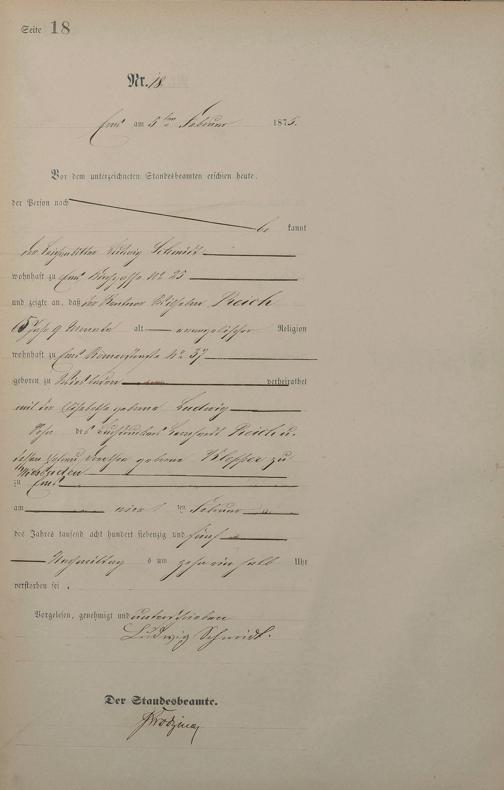 Seite 18
Nr. 18
Ems am 5ten Februar 1875.
Vor dem unterzeichneten Standesbeamten erschien heute,
der Person nach
be kannt
der Ludwig Schmidt
wohnhaft zu Ems No 25
und zeigte an, daß der Rentner Wilhelm Reich
65 Jahr 9 Monate alt evangelischer Religion
wohnhaft zu Ems Römerstraße No 37
geboren zu Wiesbaden verheirathet
mit der Elisabetha geborne Ludwig
Sohn des Reich u.
dessen Ehefrau Dorothea geborne zu
Wiesbaden
zu Ems
am vier ten Februar
des Jahres tausend acht hundert siebenzig und fünf
Nachmittag s um zehn ein halb Uhr
verstorben sei.
Vorgelesen, genehmigt und unterschrieben
Ludwig Schmidt.
Der Standesbeamte.